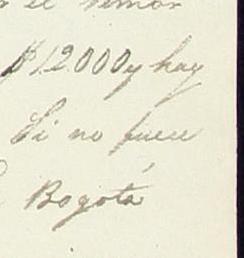 el
$12000 y hay
Si no fuese
Bogotá